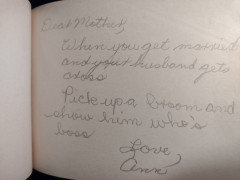 Dear Mother,
When you get married
and your husband gets
cross
Pick up a broom and
show him who's
boss
Love,
Ann